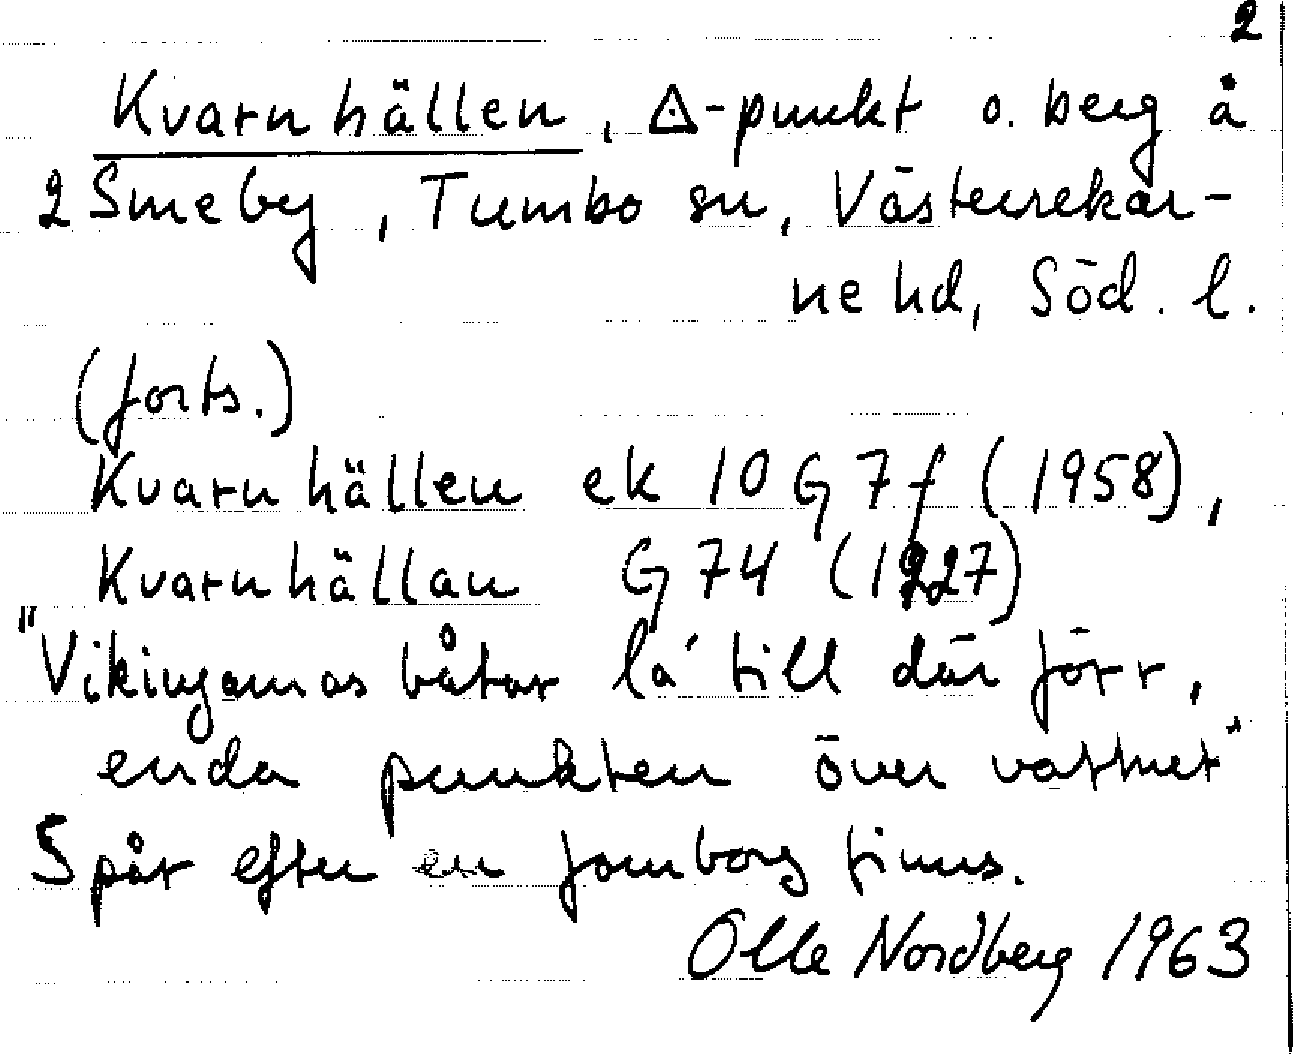 2
Kvarnhällen, △-punkt o. berg å
2 Smeby, Tumbo sn, Västerrekar-
ne hd, Söd. l.
(forts.)
Kvarnhällen ek 10 G 7 f (1958),
Kvarnhällan G 74 (1927)
"Vikingarnas båtar la' till där förr,
enda punkten över vattnet"
Spår efter en fornborg finns.
Olle Nordberg 1963